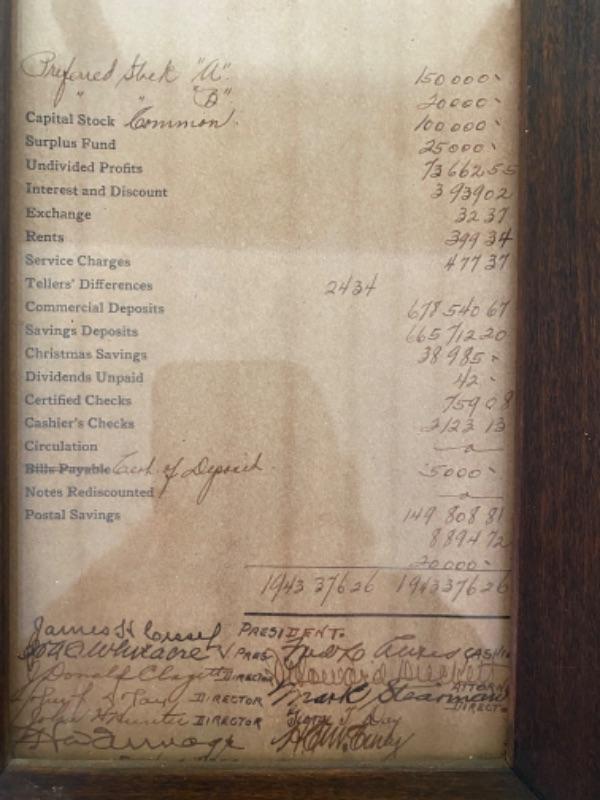 Preferred Stock "A" 150000
" " "B" 20000
Capital Stock Common 100000
Surplus Fund 25000
Undivided Profits 73662 55
Interest and Discount 3939 02
Exchange 32 37
Rents 399 34
Service Charges 477 37
Tellers' Differences 24 34
Commercial Deposits 678540 67
Savings Deposits 665712 20
Christmas Savings 38985
Dividends Unpaid 42
Certified Checks 759 08
Cashier's Checks 2123 13
Circulation
Bills Payable Cert. of Deposit 5000
Notes Rediscounted
Postal Savings 149 808 81
8894 72
20000
1943 376 26 1943376 26
James H PRESIDENT.
V PRES. Fred
J Donald Clagett DIRECTOR Howard Duckett
DIRECTOR Mark Stearman
John Hunter DIRECTOR Day